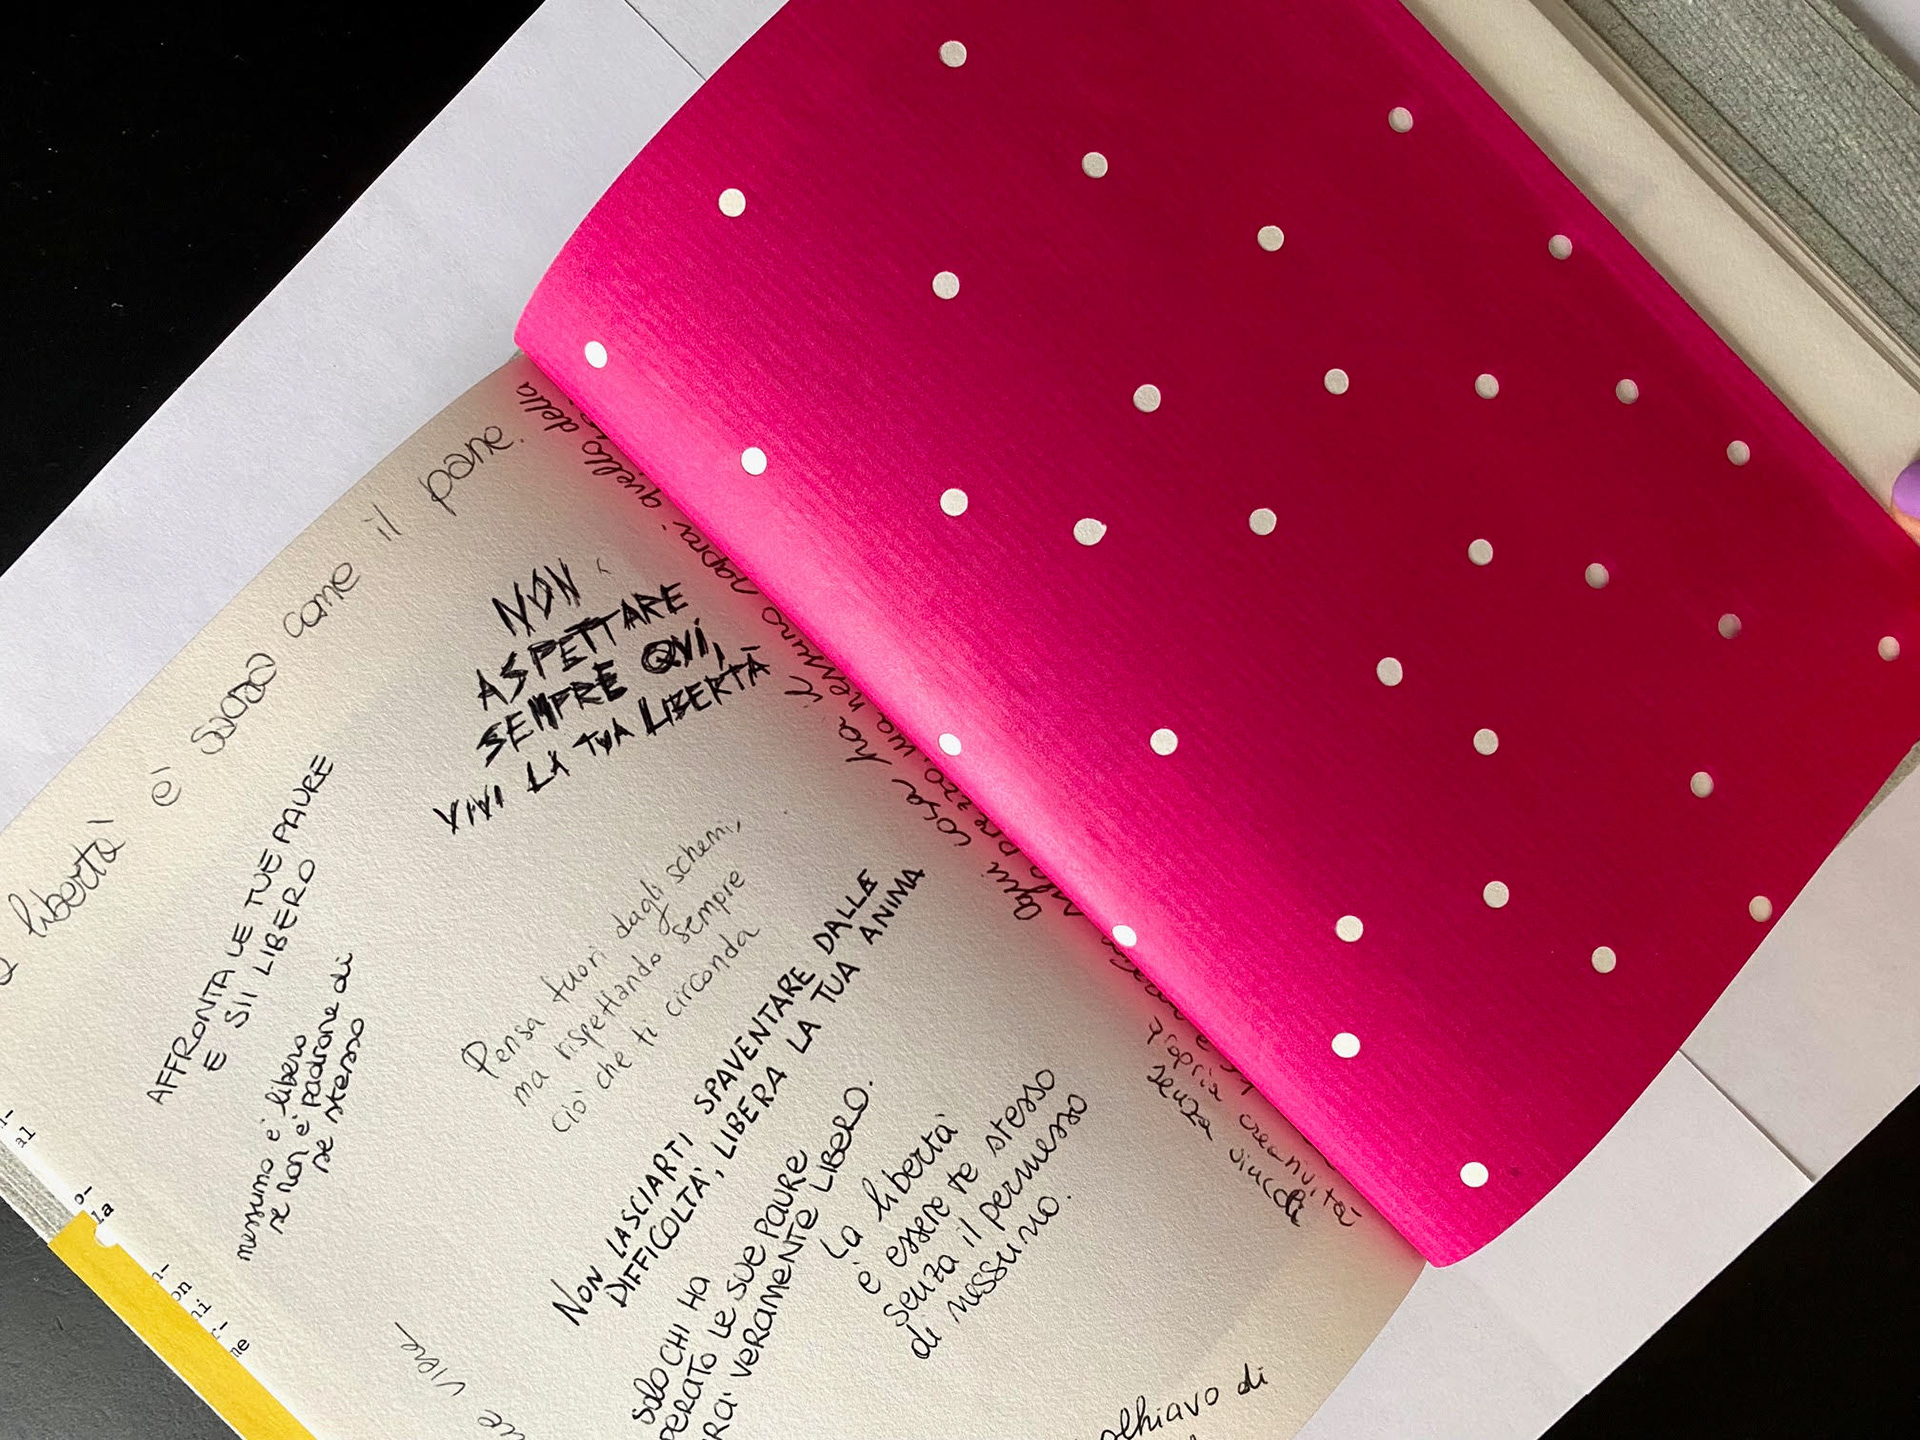 libertà è sacra come il pane.
NON
ASPETTARE
SEMPRE QUI,
VIVI LA TUA LIBERTÀ
quello della
nessuno saprà
Ogni cosa ha il
prezzo, ma
AFFRONTA LE TUE PAURE
E SII LIBERO
nessuno è libero
se non è padrone di
se stesso
Pensa fuori dagli schemi,
ma rispettando sempre
Ciò che ti circonda
NON LASCIARTI SPAVENTARE DALLE
DIFFICOLTA', LIBERA LA TUA ANIMA
SOLO CHI HA
PERATO LE SUE PAURE
RA' VERAMENTE LIBERO.
La libertà
è essere te stesso
senza il permesso
di nessuno.
propria creatività
senza vincoli
schiavo di
al
o-
la
n-
on
ni
me